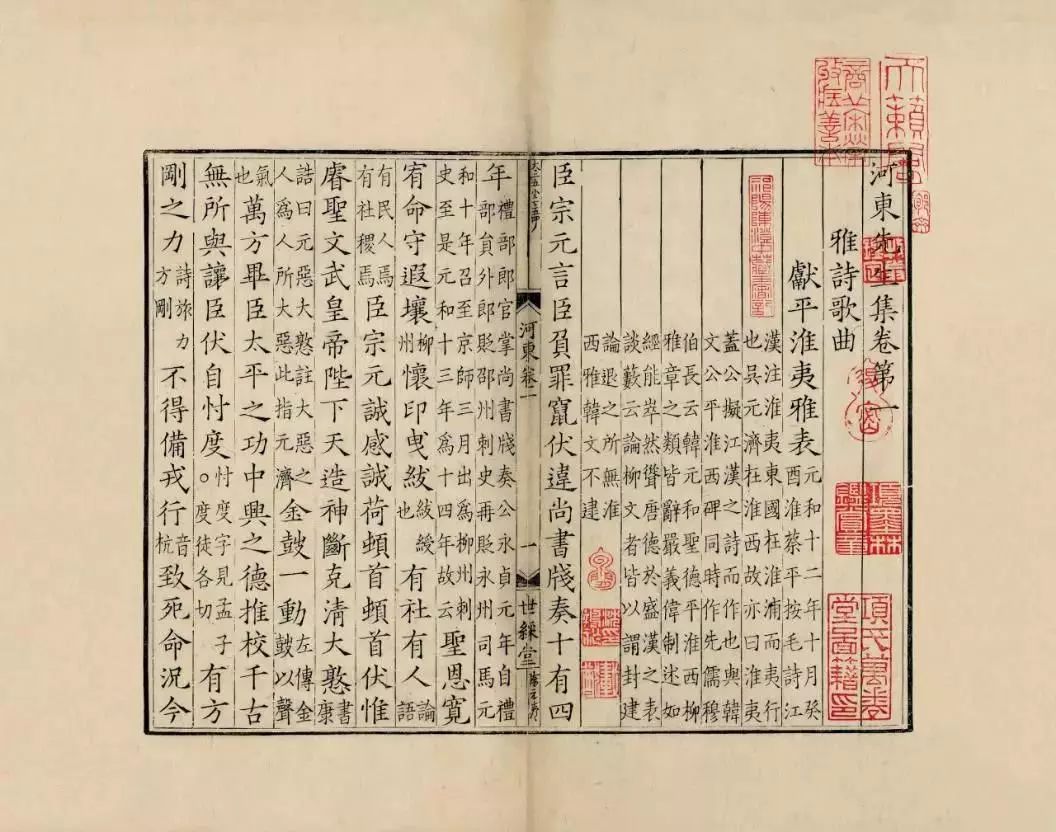 河東先生集卷第一
雅詩歌曲
獻平淮夷雅表元和十二年十月癸酉淮蔡平按毛詩江
漢注淮夷東國在淮浦而夷行也吳元濟在淮西故亦曰淮夷
蓋公擬江漢之詩而作也與韓文公平淮西碑同時作先儒穆
伯長云韓元和聖德平淮西柳雅章之類皆辭嚴義偉制述如
經能崒然聳唐德於盛漢之表談藪云論柳文者皆以謂封建
論退之所無淮西雅韓文不逮
臣宗元言臣負罪竄伏違尚書牋奏十有四
河東卷一
一
世綵堂
年禮部郎官掌尚書牋奏公永貞元年自禮部員外郎貶邵州刺史再貶永州司馬元
和十年召至京師三月出爲柳州刺史至是元和十三年爲十四年故云聖恩寬
宥命守遐壤柳州懷印曳紱紱綬也有社有人論語
有民人焉有社稷焉臣宗元誠感誠荷頓首頓首伏惟
睿聖文武皇帝陛下天造神斷克清大憝書康
誥曰元惡大憝註大惡之人爲人所大惡此指元濟金鼓一動左傳金鼓以聲
氣也萬方畢臣太平之功中興之德推校千古
無所與讓臣伏自忖度。忖度字見孟子度徒各切有方
剛之力詩旅力方剛不得備戎行音杭致死命況今
天籟閣
項墨林鑑賞章
項氏萬卷堂圖籍印